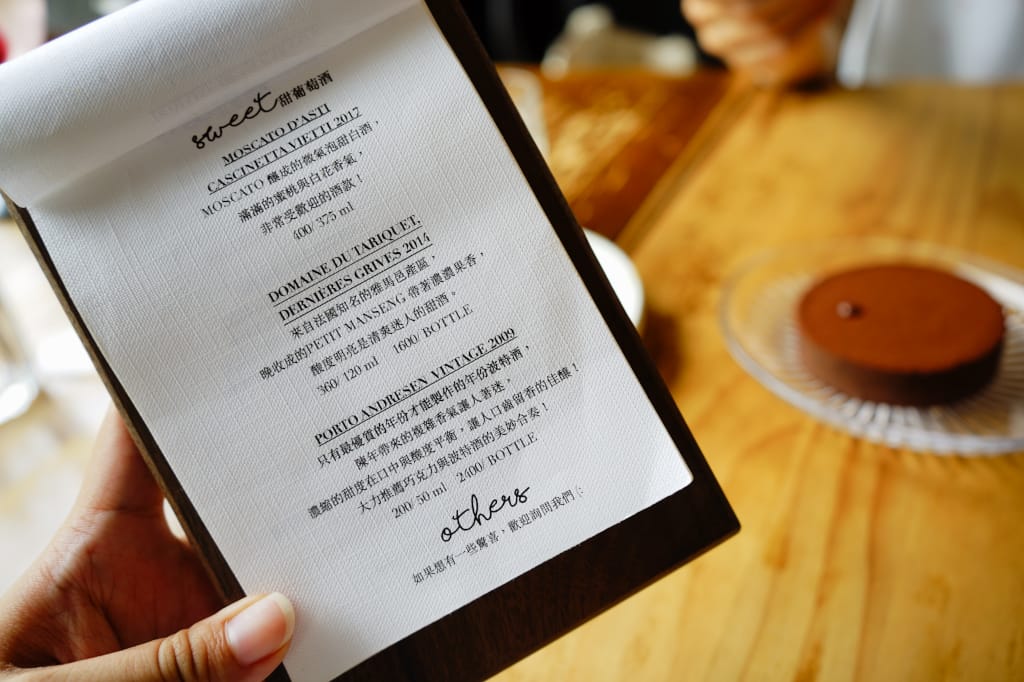 sweet 甜葡萄酒
MOSCATO D'ASTI
CASCINETTA VIETTI 2017
MOSCATO 釀成的微氣泡甜白酒，
滿滿的蜜桃與白花香氣，
非常受歡迎的酒款！
400/ 375 ml
DOMAINE DU TARIQUET,
DERNIÈRES GRIVES 2014
來自法國知名的雅馬邑產區，
晚收成的PETIT MANSENG 帶著濃濃果香，
酸度明亮是清爽迷人的甜酒。
360/ 120 ml 1600/ BOTTLE
PORTO ANDRESEN VINTAGE 2009
只有最優質的年份才能製作的年份波特酒，
陳年帶來的複雜香氣讓人著迷，
濃縮的甜度在口中與酸度平衡，讓人口齒留香的佳釀！
大力推薦巧克力與波特酒的美妙合奏！
200/ 50 ml 2400/ BOTTLE
others
如果想有一些驚喜，歡迎詢問我們 (: